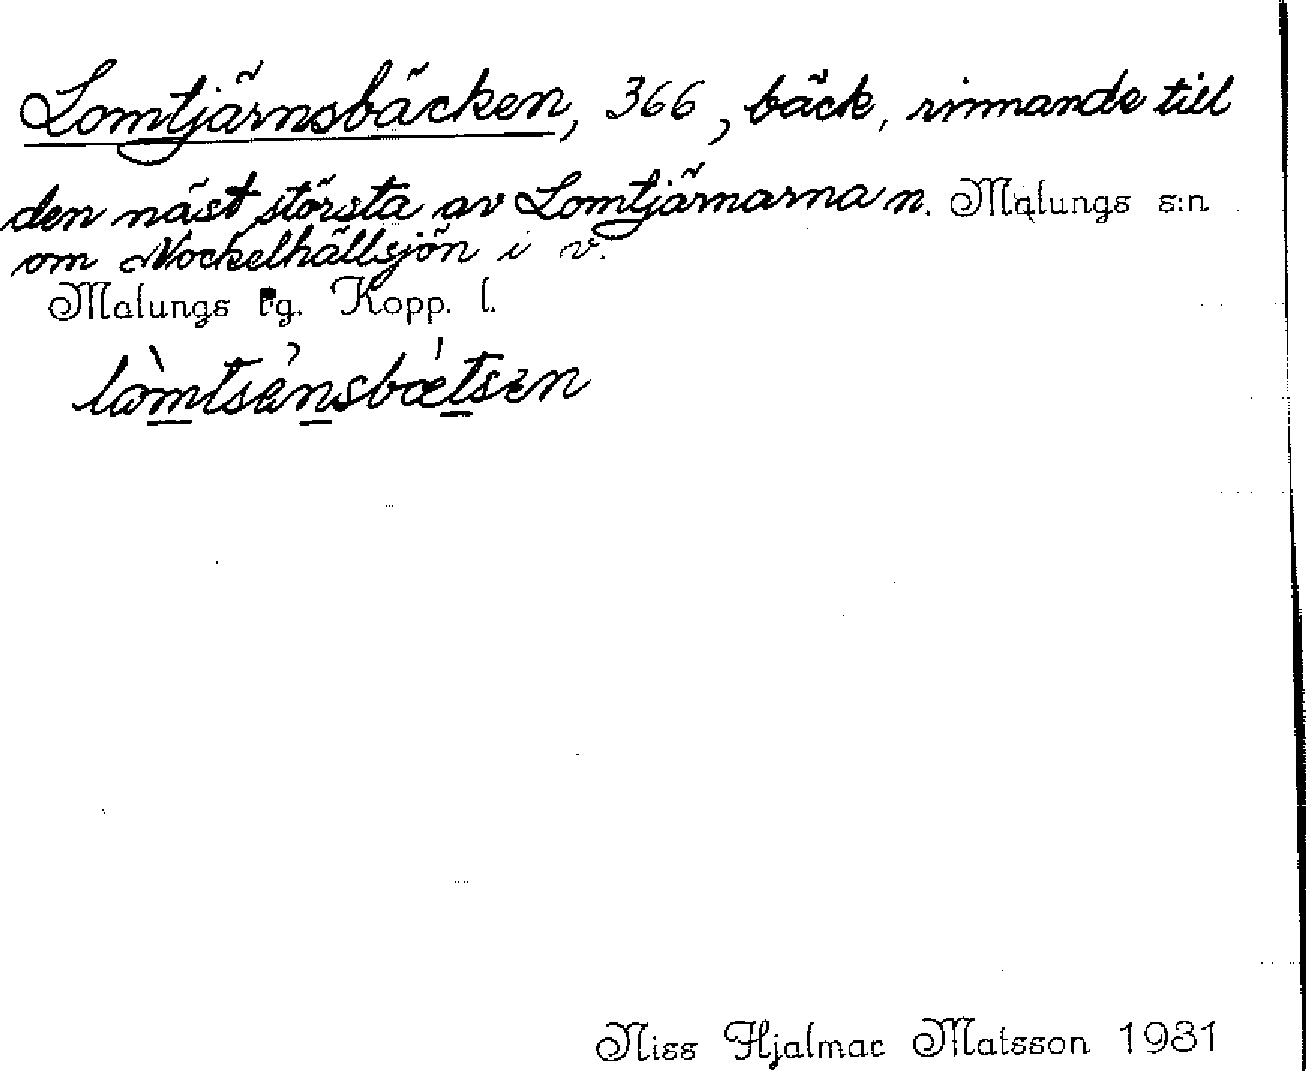 Lomtjärnsbäcken, 366, bäck, rinnande till
den näst största av Lomtjärnarna n. Malungs s:n
om Nockelhällsjön i v.
Malungs tg. Kopp. l.
lòmtsǝ́nsbǽtsen
Niss Hjalmar Matsson 1931